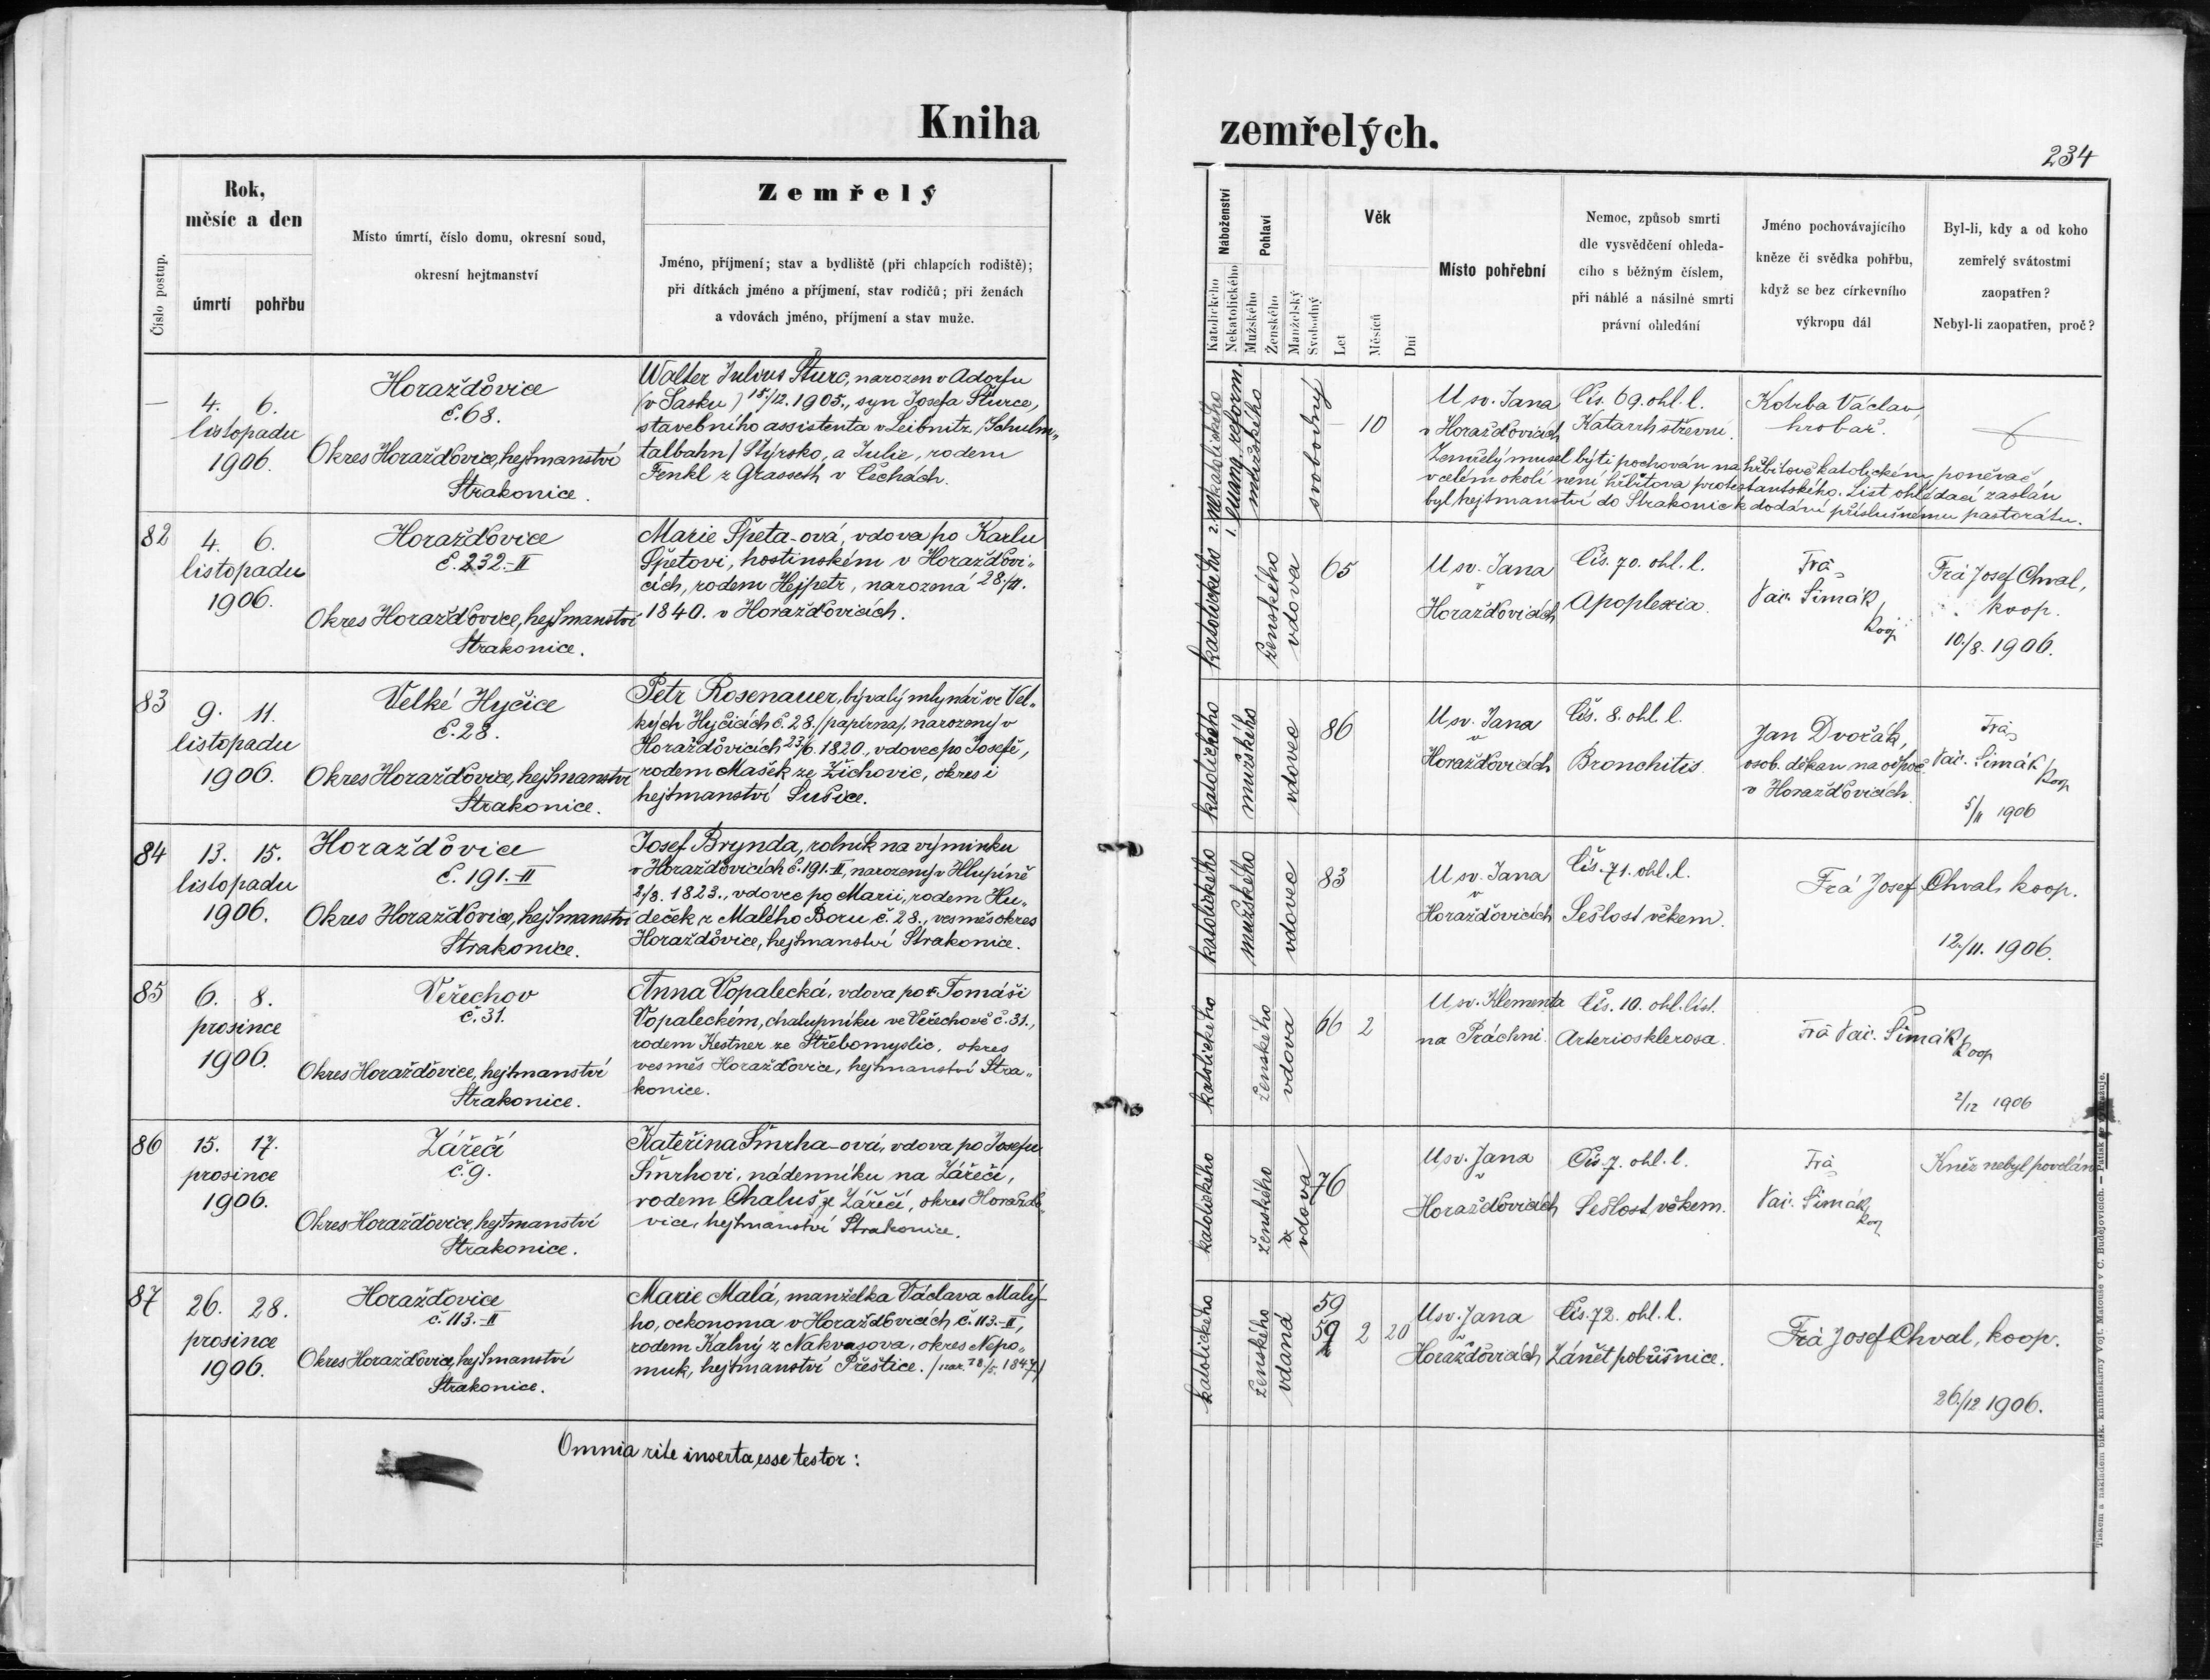 Kniha zemřelých.
234
Číslo postup.
Rok,
měsíc a den
úmrtí pohřbu
Místo úmrtí, číslo domu, okresní soud,
okresní hejtmanství
Zemřelý
Jméno, příjmení; stav a bydliště (při chlapcích rodiště);
při dítkách jméno a příjmení, stav rodičů; při ženách
a vdovách jméno, příjmení a stav muže.
Náboženství
Katolického
Nekatolického
Pohlaví
Mužského
Ženského
Manželský
Svobodný
Věk
Let
Měsíců
Dní
Místo pohřební
Nemoc, způsob smrti
dle vysvědčení ohleda-
cího s běžným číslem,
při náhlé a násilné smrti
právní ohledání
Jméno pochovávajícího
kněze či svědka pohřbu,
když se bez církevního
výkropu dál
Byl-li, kdy a od koho
zemřelý svátostmi
zaopatřen?
Nebyl-li zaopatřen, proč?
—
4. 6.
listopadu
1906.
Horažďovice
č. 68.
Okres Horažďovice, hejtmanství
Strakonice.
Walter Julius Šturc, narozen v Adorfu
(v Sasku) 15/12. 1905., syn Josefa Šturce,
stavebního assistenta v Leibnitz (Schulm„
talbahn) Štýrsko, a Julie, rodem
Fenkl z Grasseth v Čechách.
2. Nekatolického
1. Evang. reform.
mužského
svobodný
— 10
U sv. Jana
v Horažďovicích
Čís. 69. ohl. l.
Katarrh střevní.
Kotrba Václav,
hrobař.
Zemřelý musel býti pochován na hřbitově katolickém, poněvač
v celém okolí není hřbitova protestantského. List ohledací zaslán
byl hejtmanství do Strakonic k dodání příslušnému pastorátu.
82
4. 6.
listopadu
1906.
Horažďovice
č. 232.-II
Okres Horažďovice, hejtmanství
Strakonice.
Marie Špeta-ová, vdova po Karlu
Špetovi, hostinském v Horažďovi„
cích, rodem Hejpetr, narozená 28./11.
1840. v Horažďovicích.
katolického
ženského
vdova
65
U sv. Jana
v
Horažďovicích
Čís. 70. ohl. l.
Apoplexia.
Frá
Vác. Šimák,
koop
Frá Josef Chval,
koop.
10./8. 1906.
83
9. 11.
listopadu
1906.
Velké Hyčice
č. 28.
Okres Horažďovice, hejtmanství
Strakonice.
Petr Rosenauer, bývalý mlynář ve Vel„
kých Hyčicích č. 28. (papírna), narozený v
Horažďovicích 23/6. 1820., vdovec po Josefě,
rodem Mašek ze Žichovic, okres i
hejtmanství Sušice.
katolického
mužského
vdovec
86
U sv. Jana
v
Horažďovicích
Čís. 8. ohl. l.
Bronchitis.
Jan Dvořák,
osob. děkan na odpoč.
v Horažďovicích.
Frá
Vác. Šimák
koop
5/11 1906
84
13. 15.
listopadu
1906.
Horažďovice
č. 191.-II
Okres Horažďovice, hejtmanství
Strakonice.
Josef Brynda, rolník na výminku
v Horažďovicích č. 191.-II, narozený v Hlupíně
2./8. 1823., vdovec po Marii, rodem Hu„
deček z Malého Boru č. 28., vesměs okres
Horažďovice, hejtmanství Strakonice.
katolického
mužského
vdovec
83
U sv. Jana
v
Horažďovicích
Čís. 71. ohl. l.
Sešlost věkem.
Frá Josef Chval, koop.
12./11. 1906.
85
6. 8.
prosince
1906.
Veřechov
č. 31.
Okres Horažďovice, hejtmanství
Strakonice.
Anna Vopalecká, vdova po Tomáši
Vopaleckém, chalupníku ve Veřechově č. 31.,
rodem Kestner ze Střebomyslic, okres
vesměs Horažďovice, hejtmanství Stra„
konice.
katolického
ženského
vdova
66 2
U sv. Klementa
na Práchni.
Čís. 10. ohl. líst.
Arteriosklerosa.
Frá Vác. Šimák
koop
2/12 1906
86
15. 17.
prosince
1906.
Zářečí
č. 9.
Okres Horažďovice, hejtmanství
Strakonice.
Kateřina Šmrha-ová, vdova po Josefu
Šmrhovi, nádenníku na Zářečí,
rodem Chaluš ze Zářečí, okres Horažďo„
vice, hejtmanství Strakonice.
katolického
ženského
vdova
76
U sv. Jana
v
Horažďovicích
Čís. 7. ohl. l.
Sešlost věkem.
Frá
Vác. Šimák
koop
Kněz nebyl povolán
87
26. 28.
prosince
1906.
Horažďovice
č. 113.-II
Okres Horažďovice, hejtmanství
Strakonice.
Marie Malá, manželka Václava Malý-
ho, oekonoma v Horažďovicích č. 113.-II,
rodem Kalný z Nakvasova, okres Nepo„
muk, hejtmanství Přeštice. (nar. 28/5. 1847)
katolického
ženského
vdaná
59
59 2 20
U sv. Jana
v
Horažďovicích
Čís. 72. ohl. l.
Zánět pobřišnice.
Frá Josef Chval, koop.
26./12 1906.
Omnia rite inserta esse testor:
Tiskem a nákladem bisk. knihtiskárny Vojt. Matouše v Č. Budějovicích. —